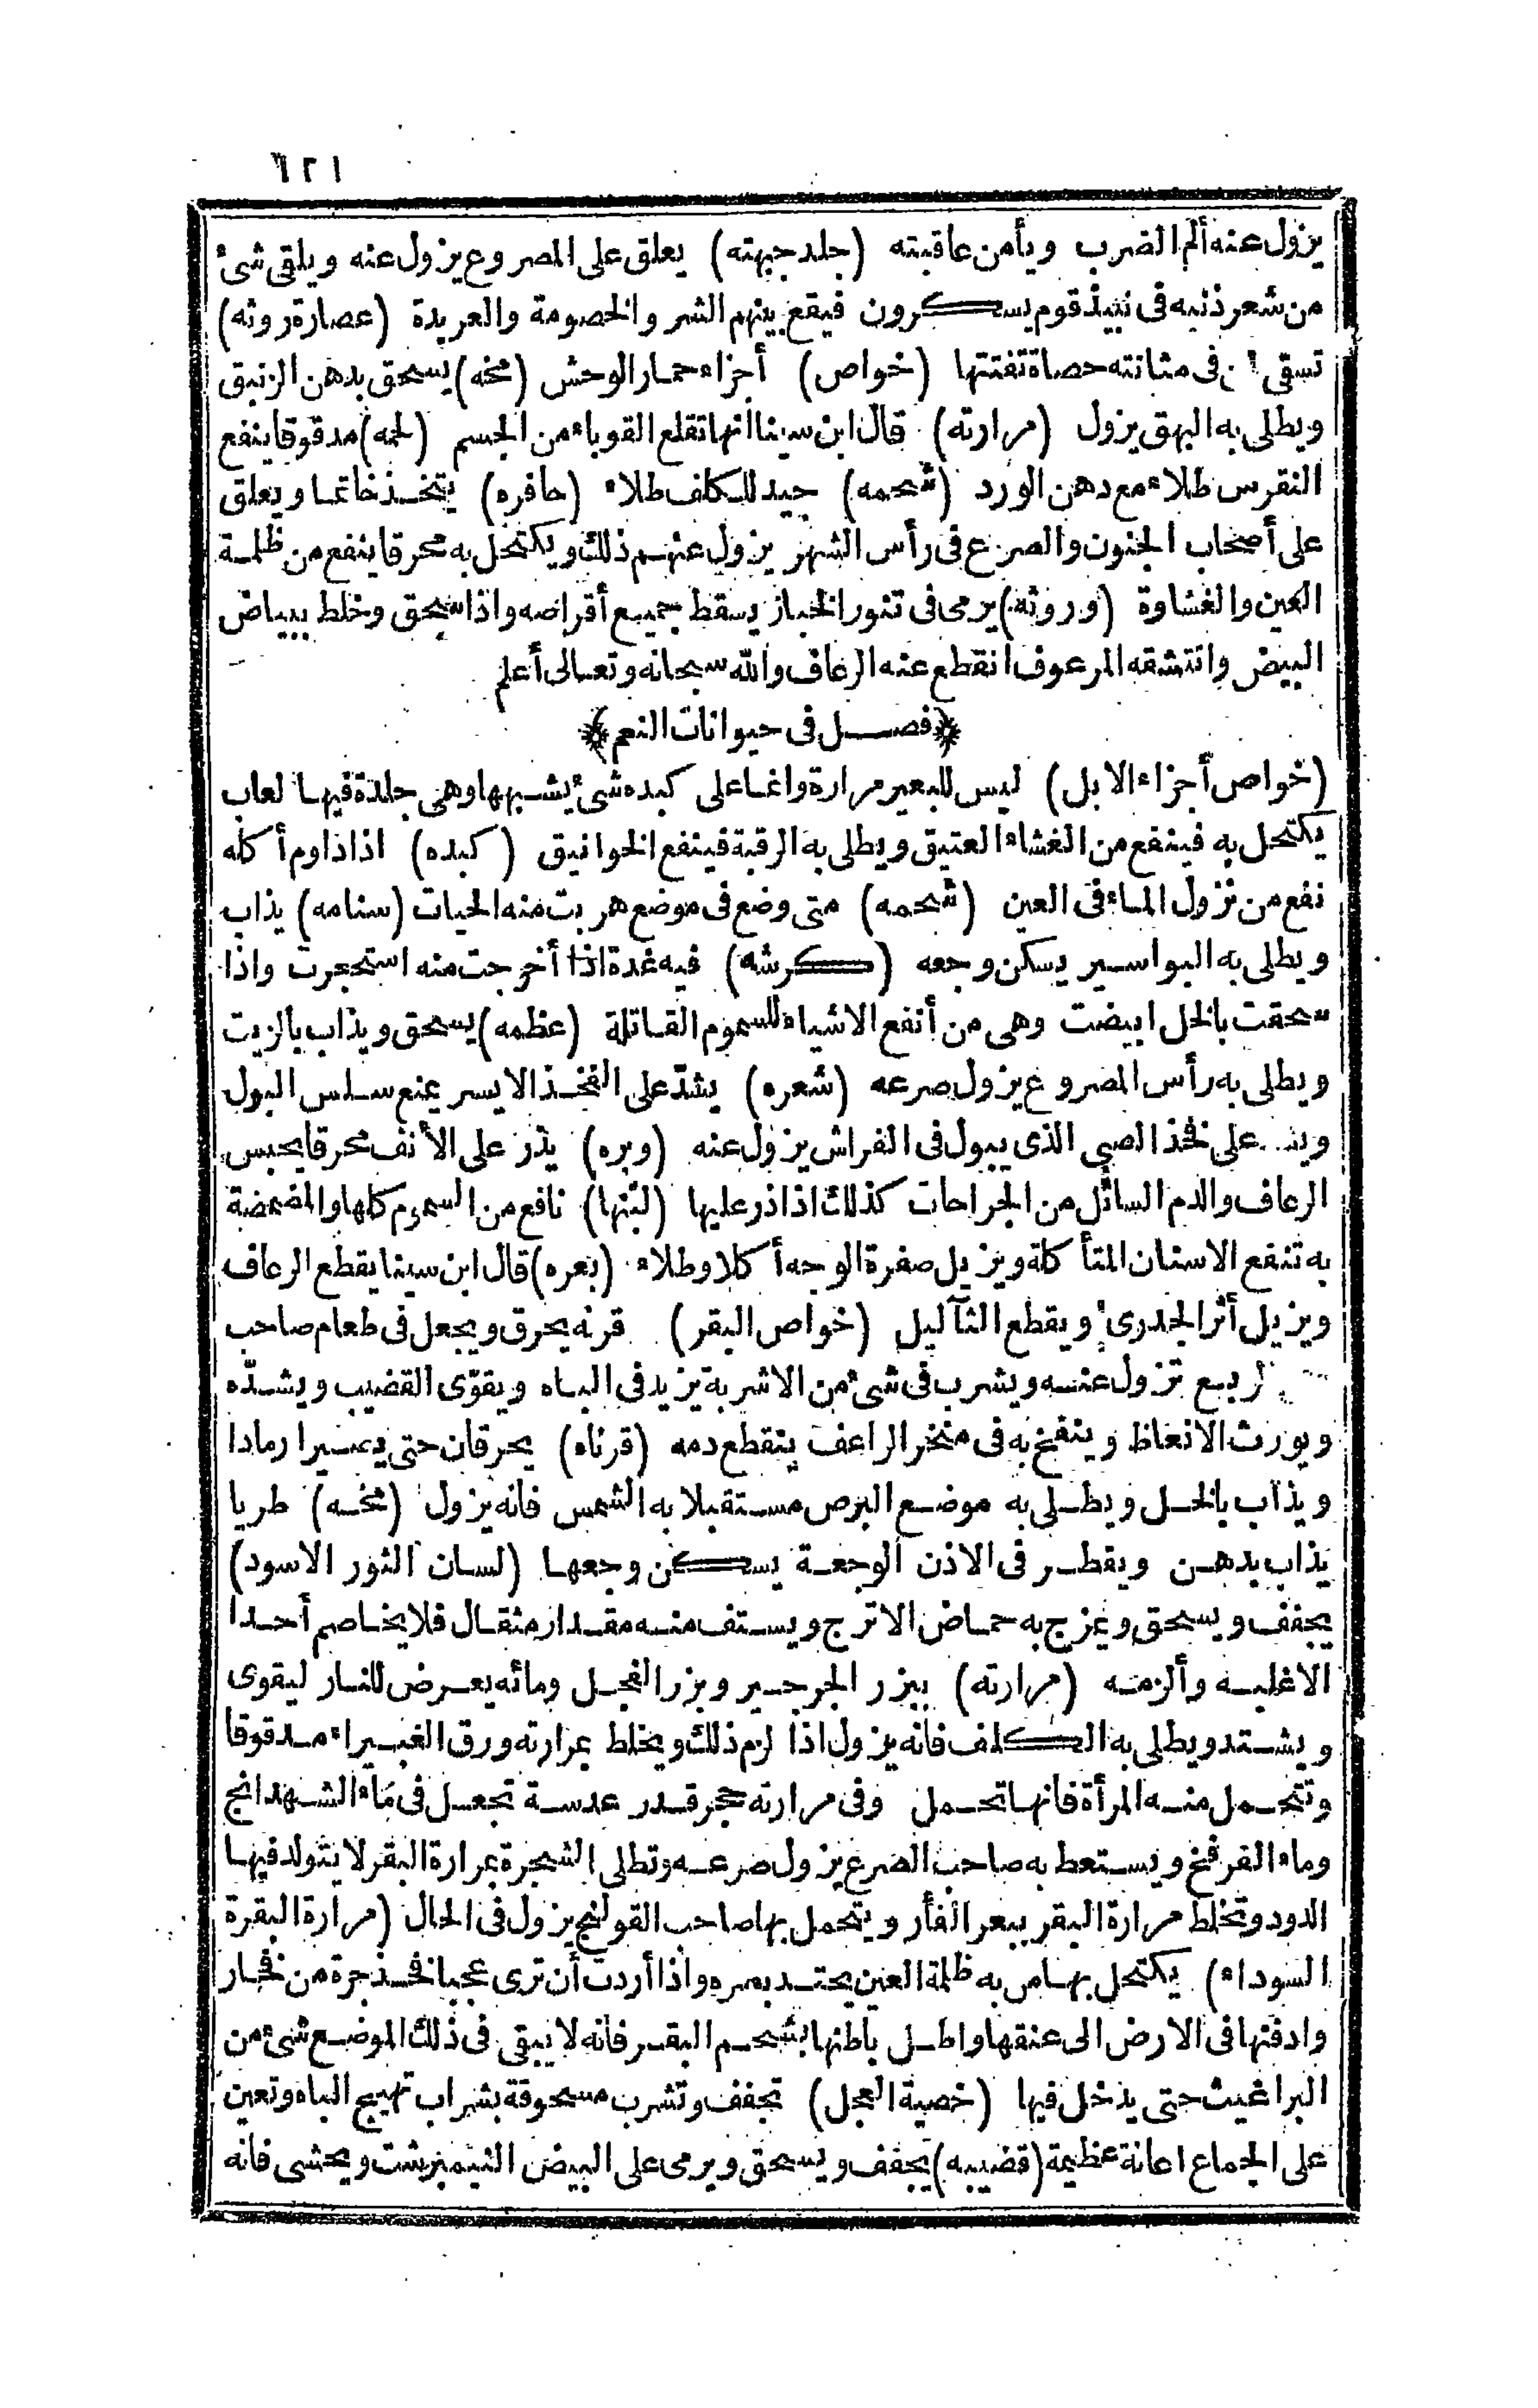 ١٢١
يزول عنه ألم الضرب ويأمن عاقبته (جلد جبهته) يعلق على المصروع يزول عنه ويلقى شئ
من شعر ذنبه فى نبيذ قوم يسكرون فيقع بينهم الشر والخصومة والعربدة (عصارة روثه)
تسقى فى مثانته حصاة تفتتها (خواص) أجزاء حمار الوحش (مخه) يسحق بدهن الزنبق
ويطلى به البهق يزول (مرارته) قال ابن سينا انها تقلع القوباء من الجسم (لحمه) مدقوقا ينفع
النقرس طلاء مع دهن الورد (شحمه) جيد للكلف طلاء (حافره) يتخذ خاتما ويعلق
على أصحاب الجنون والصرع فى رأس الشهر يزول عنهم ذلك ويكتحل به محرقا ينفع من ظلمة
العين والغشاوة (وروثه) يرمى فى تنور الخباز يسقط جميع أقراصه واذا سحق وخلط ببياض
البيض وانتشقه المرعوف انقطع عنه الرعاف والله سبحانه وتعالى أعلم
﴿فصل فى حيوانات النعم﴾
(خواص أجزاء الابل) ليس للبعير مرارة وانما على كبده شئ يشبهها وهى جلدة فيها لعاب
يكتحل به فينفع من الغشاء العتيق ويطلى به الرقبة فينفع الخوانيق (كبده) اذا داوم أكله
نفع من نزول الماء فى العين (شحمه) متى وضع فى موضع هربت منه الحيات (سنامه) يذاب
ويطلى به البواسير يسكن وجعه (كرشه) فيه غدة اذا أخرجت منه استحجرت واذا
سحقت بالخل ابيضت وهى من أنفع الاشياء للسموم القاتلة (عظمه) يسحق ويذاب بالزيت
ويطلى به رأس المصروع يزول صرعه (شعره) يشدّ على الفخذ الايسر يمنع سلس البول
على فخذ الصبى الذى يبول فى الفراش يزول عنه (وبره) يذر على الأنف محرقا يحبس
الرعاف والدم السائل من الجراحات كذلك اذا ذر عليها (لبنها) نافع من السموم كلها والمضمضة
به تنفع الاسنان المتأكلة ويزيل صفرة الوجه أكلا وطلاء (بعره) قال ابن سينا يقطع الرعاف
ويزيل أثر الجدرى ويقطع الثآليل (خواص البقر) قرنه يحرق ويجعل فى طعام صاحب
تزول عنه ويشرب فى شئ من الاشربة يزيد فى الباه ويقوّى القضيب ويشدّه
ويورث الانعاظ وينفخ به فى منخر الراعف ينقطع دمه (قرناه) يحرقان حتى يصيرا رمادا
ويذاب بالخل ويطلى به موضع البرص مستقبلا به الشمس فانه يزول (مخه) طريا
يذاب بدهن ويقطر فى الاذن الوجعة يسكن وجعها (لسان الثور الاسود)
يجفف ويسحق ويمزج به حماض الاترج ويستف منه مقدار مثقال فلا يخاصم أحدا
الا غلبه وألزمه (مرارته) ببزر الجرجير وبزر الفجل ومائه يعرض للنار ليقوى
ويشتد ويطلى به الكلف فانه يزول اذا لزم ذلك ويخلط بمرارته ورق الغبيراء مدقوقا
وتتحمل منه المرأة فانها تحمل وفى مرارته حجر قدر عدسة تجعل فى ماء الشهدانج
وماء الفرفخ ويستعط به صاحب الصرع يزول صرعه وتطلى الشجرة بمرارة البقر لا يتولد فيها
الدود وتخلط مرارة البقر ببعر الفأر ويتحمل بها صاحب القولنج يزول فى الحال (مرارة البقرة
السوداء) يكتحل بها من به ظلمة العين يحتد بصره واذا أردت أن ترى عجبا فخذ جرة من فخار
وادفنها فى الارض الى عنقها واطل باطنها بشحم البقر فانه لا يبقى فى ذلك الموضع شئ من
البراغيث حتى يدخل فيها (خصية العجل) تجفف وتشرب مسحوقة بشراب تهيج الباه وتعين
على الجماع اعانة عظيمة (قضيبه) يجفف ويسحق ويرمى على البيض النيمبرشت ويحشى فانه